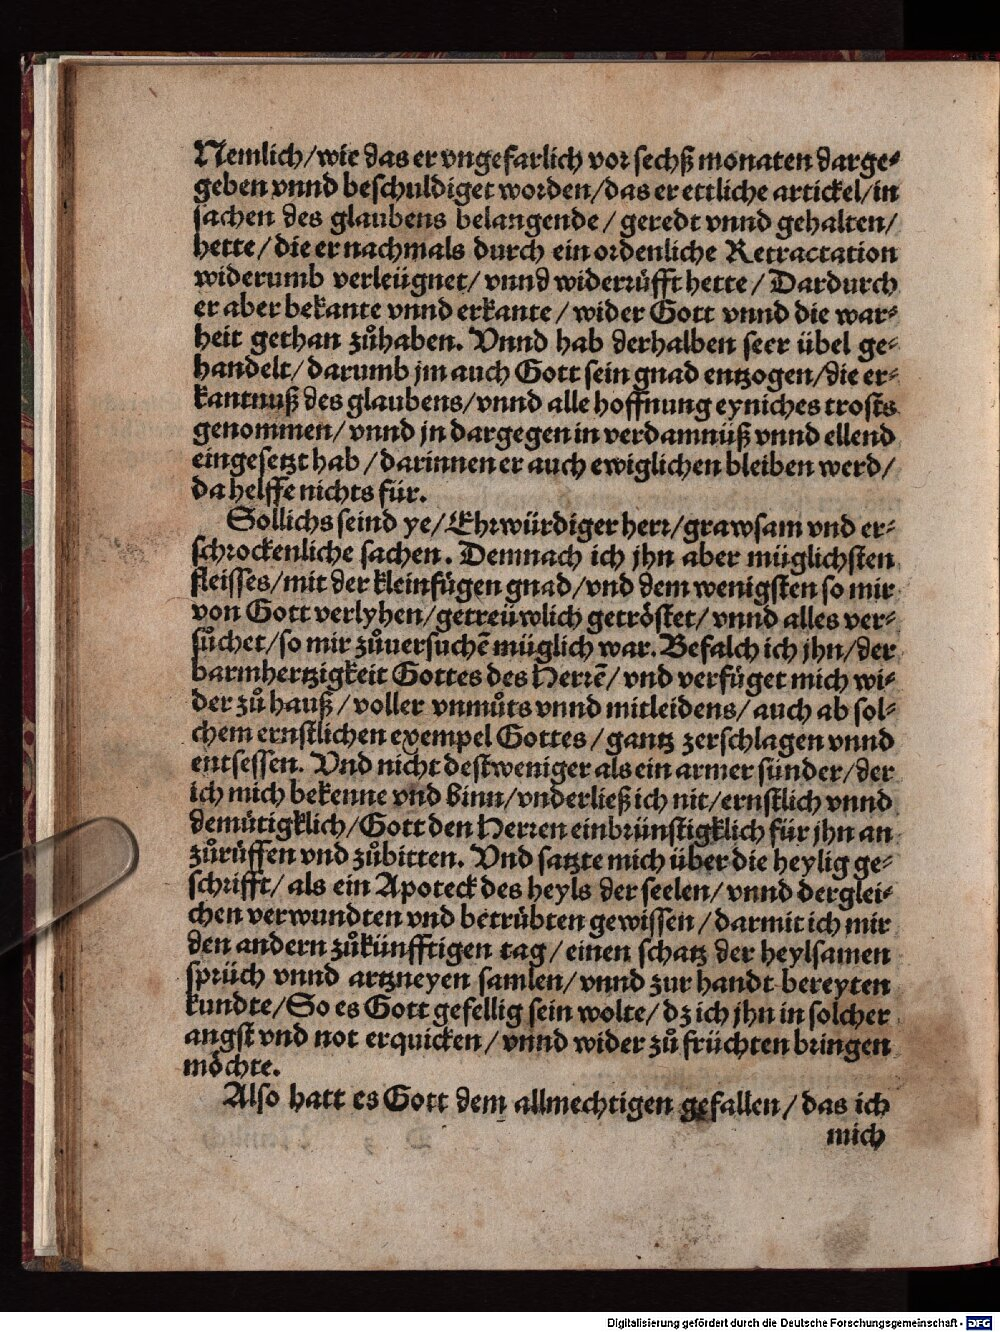 Nemlich/wie das er vngefarlich vor sechß monaten darge⸗
geben vnnd beschuldiget worden/das er ettliche artickel/in
sachen des glaubens belangende/geredt vnnd gehalten/
hette/die er nachmals durch ein ordenliche Retractation
widerumb verleügnet/vnnd widerrůfft hette/Dardurch
er aber bekante vnnd erkante/wider Gott vnnd die war⸗
heit gethan zůhaben. Vnnd hab derhalben seer übel ge⸗
handelt/darumb jm auch Gott sein gnad entzogen/die er⸗
kantnuß des glaubens/vnnd alle hoffnung eyniches trosts
genommen/vnnd jn dargegen in verdamnüß vnnd ellend
eingesetzt hab/darinnen er auch ewiglichen bleiben werd/
da helffe nichts für.
Sollichs seind ye/Ehrwürdiger herr/grawsam vnd er⸗
schrockenliche sachen. Demnach ich jhn aber müglichsten
fleisses/mit der kleinfügen gnad/vnd dem wenigsten so mir
von Gott verlyhen/getreüwlich getröstet/vnnd alles ver⸗
sůchet/so mir zůuersuchē müglich war. Befalch ich jhn/der
barmhertzigkeit Gottes des Herrē/vnd verfüget mich wi⸗
der zů hauß/voller vnmůts vnnd mitleidens/auch ab sol⸗
chem ernstlichen exempel Gottes/gantz zerschlagen vnnd
entsessen. Vnd nicht destweniger als ein armer sünder/der
ich mich bekenne vnd binn/vnderließ ich nit/ernstlich vnnd
demütigklich/Gott den Herren einbrünstigklich für jhn an
zůrüffen vnd zůbitten. Vnd satzte mich über die heylig ge⸗
schrifft/als ein Apoteck des heyls der seelen/vnnd derglei⸗
chen verwundten vnd betrübten gewissen/darmit ich mir
den andern zůkünfftigen tag/einen schatz der heylsamen
sprüch vnnd artzneyen samlen/vnnd zur handt bereyten
kundte/So es Gott gefellig sein wolte/dz ich jhn in solcher
angst vnd not erquicken/vnnd wider zů früchten bringen
möchte.
Also hatt es Gott dem allmechtigen gefallen/das ich
mich
Digitalisierung gefördert durch die Deutsche Forschungsgemeinschaft - DFG